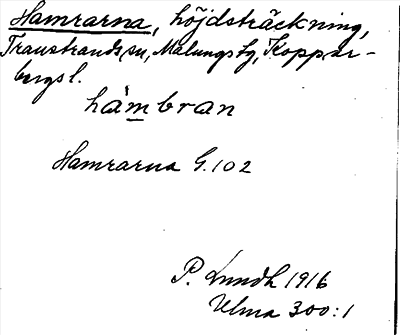 Hamrarna, höjdsträckning,
Transtrands sn, Malungs tg, Koppar-
bergs l.
hambran
Hamrarna G. 102
P. Lundh 1916
Ulma 300:1